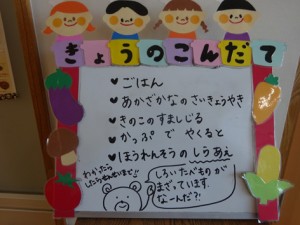 きょうのこんだて
♥ ごはん
♥ あかざかなのさいきょうやき
♥ きのこのすましじる
♥ かっぷ で やくると
♥ ほうれんそうのしらあえ
わかったら
しろいたべものが
まざっています。
なーんだ?!